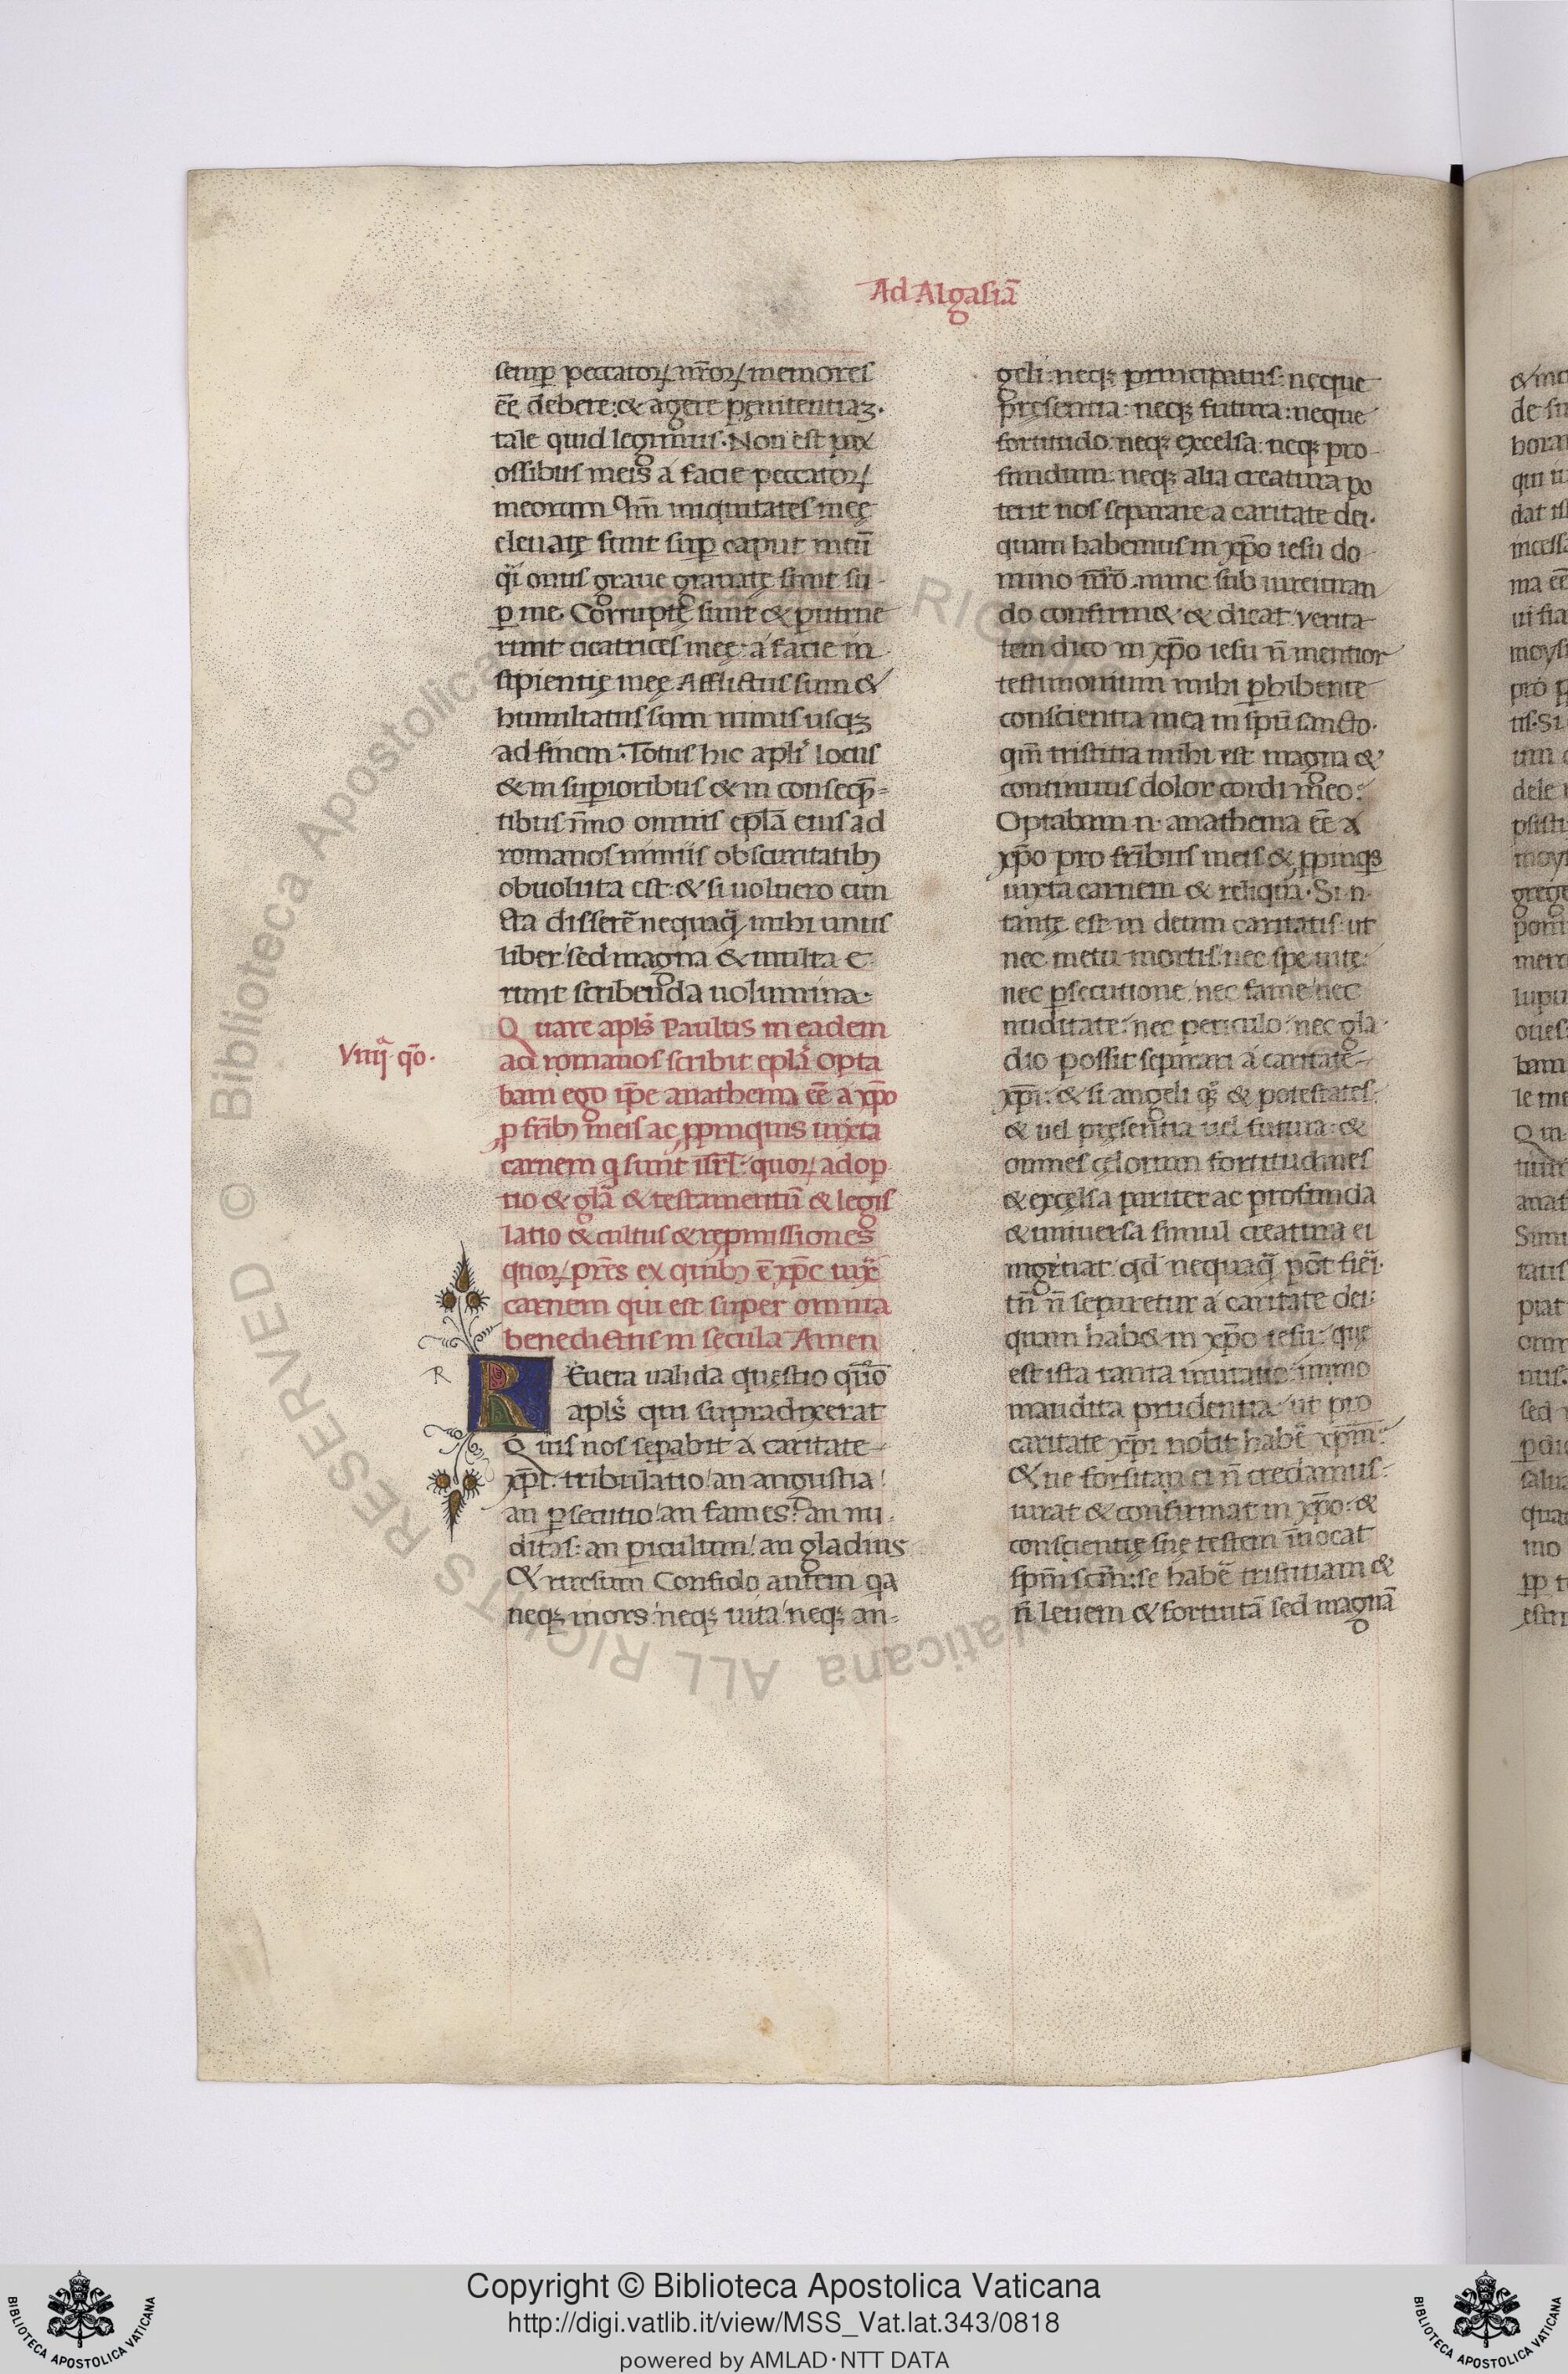 Ad Algasiā
semꝑ peccatoꝝ nr̄oꝝ memores
eē debere: & agere pęnitentiaʒ.
tale quid legimus. Non est pax
ossibus meis a facie peccatoꝝ
meorum qm̄ iniquitates meę
eleuatę sunt suꝑ caput meū
qͣi onus graue grauatę sunt su-
ꝑ me. Corruptę sunt & putrue
runt cicatrices meę: a facie in
sipientię meę Afflictus sum &
humiliatus sum nimis usqꝫ
ad finem. Totus hic apl̄i locus
& in suꝑioribus & in conseq̄n=
tibus īmo omnis epl̄a eius ad
romanos nimiis obscuritatibꝫ
obuoluta est: & si uoluero cun
cta disserē nequaqͣ mihi unus
liber sed magna & multa e
runt scribenda uolumina.
Viiijͣ qō.
Quare apl̄s Paulus in eadem
ad romanos scribit epl̄a Opta
bam ego ip̄e anathema eē a xp̄o
ꝓ frībꝫ meis ac ꝓpinquis iuxta
carnem q sunt isrl̄: quoꝝ adop
tio & gl̄a & testamentū & legis
latio & cultus & repmissiones
quoꝝ pr̄es ex quibꝫ ē xp̄c iux̄
carnem qui est super omnia
benedictus in secula Amen
R
REuera ualida questio quō
apl̄s qui supradixerat
Quis nos seꝑabit a caritate
xp̄i. tribulatio/ an angustia/
an ꝑsecutio/ an fames? an nu-
ditas: an ꝑiculum/ an gladius
& rursum Confido autem qa
neqꝫ mors/ neqꝫ uita/ neqꝫ an=
geli: neqꝫ principatus: neque
pręsentia: neqꝫ futura: neque
fortitudo: neqꝫ excelsa: neqꝫ pro-
fundum: neqꝫ alia creatura po
terit nos separare a caritate dei.
quam habemus in xp̄o iesu do-
mino nr̄o. nunc sub iureiuran
do confirmet & dicat: verita
tem dico in xp̄o iesu n̄ mentior
testimonium mihi ꝑhibente
conscientia mea in spū sancto.
qm̄ tristitia mihi est magna &
continuus dolor cordi meo:
Optabam n. anathema eē a
xp̄o pro frībus meis & ꝓpinqͥs
iuxta carnem & reliqua. Si n.
tantę est in deum caritatis: ut
nec metu mortis/ nec spe uite:
nec ꝑsecutione/ nec fame/ nec
nuditate: nec periculo: nec gla-
dio possit separari a caritate
xp̄i: & si angeli qͦꝫ & potestates:
& uel pręsentia uel futura: &
omnes cęlorum fortitudines
& excelsa pariter ac profunda
& uniuersa simul creatura ei
ingruat: qd̄ nequaqͣ pōt fieri.
tn̄ n̄ separetur a caritate dei:
quam habet in xp̄o iesu: que
est ista tanta mutatio: immo
inaudita prudentia: ut pro
caritate xp̄i nolit habē xpīm:
& ne forsitan ei n̄ credamus:
iurat & confirmat in xp̄o: &
conscientię suę testem īuocat
sp̄m scm̄: se habē tristitiam &
n̄ leuem & fortuitā sed magnā
© Biblioteca Apostolica Vaticana ALL RIGHTS RESERVED
Copyright © Biblioteca Apostolica Vaticana
http://digi.vatlib.it/view/MSS_Vat.lat.343/0818
powered by AMLAD·NTT DATA
BIBLIOTECA APOSTOLICA VATICANA
BIBLIOTECA APOSTOLICA VATICANA